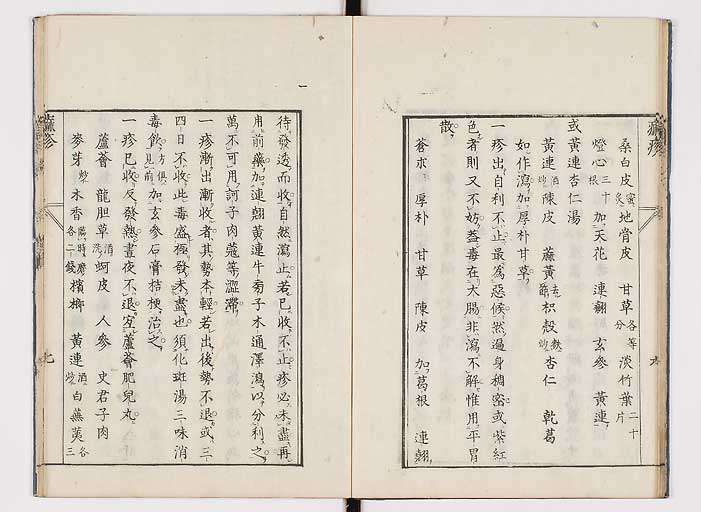 桑白皮蜜炙 地骨皮 甘草各等分 淡竹葉二十片
燈心三十根 加天花 連翹 玄參 黃連
或黃連杏仁湯
黃連酒炒 陳皮 麻黃去節 枳殼麩炒 杏仁 乾葛
如作瀉加厚朴甘草
一疹出自利不止最為惡候然遍身稠密或紫紅
色者則又不妨蓋毒在大腸非瀉不解惟用平胃
散
蒼朮 厚朴 甘草 陳皮 加葛根 連翹
麻疹
九
待發透而收自然瀉止若已收不止疹必未盡再
用前藥加連翹黃連牛蒡子木通澤瀉以分利之
萬不可用訶子肉蔻等澀滯
一疹漸出漸收者其勢本輕若出後勢不退或三
四日不收此毒盛極發未盡也須化斑湯三味消
毒飲方俱見前加玄參石膏桔梗治之
一疹已收反發熱晝夜不退宜蘆薈肥兒丸
蘆薈 龍胆草酒洗 蚵皮 人參 史君子肉
麥芽炒 木香 檳榔 黃連酒炒 白蕪荑各三
麻疹
七